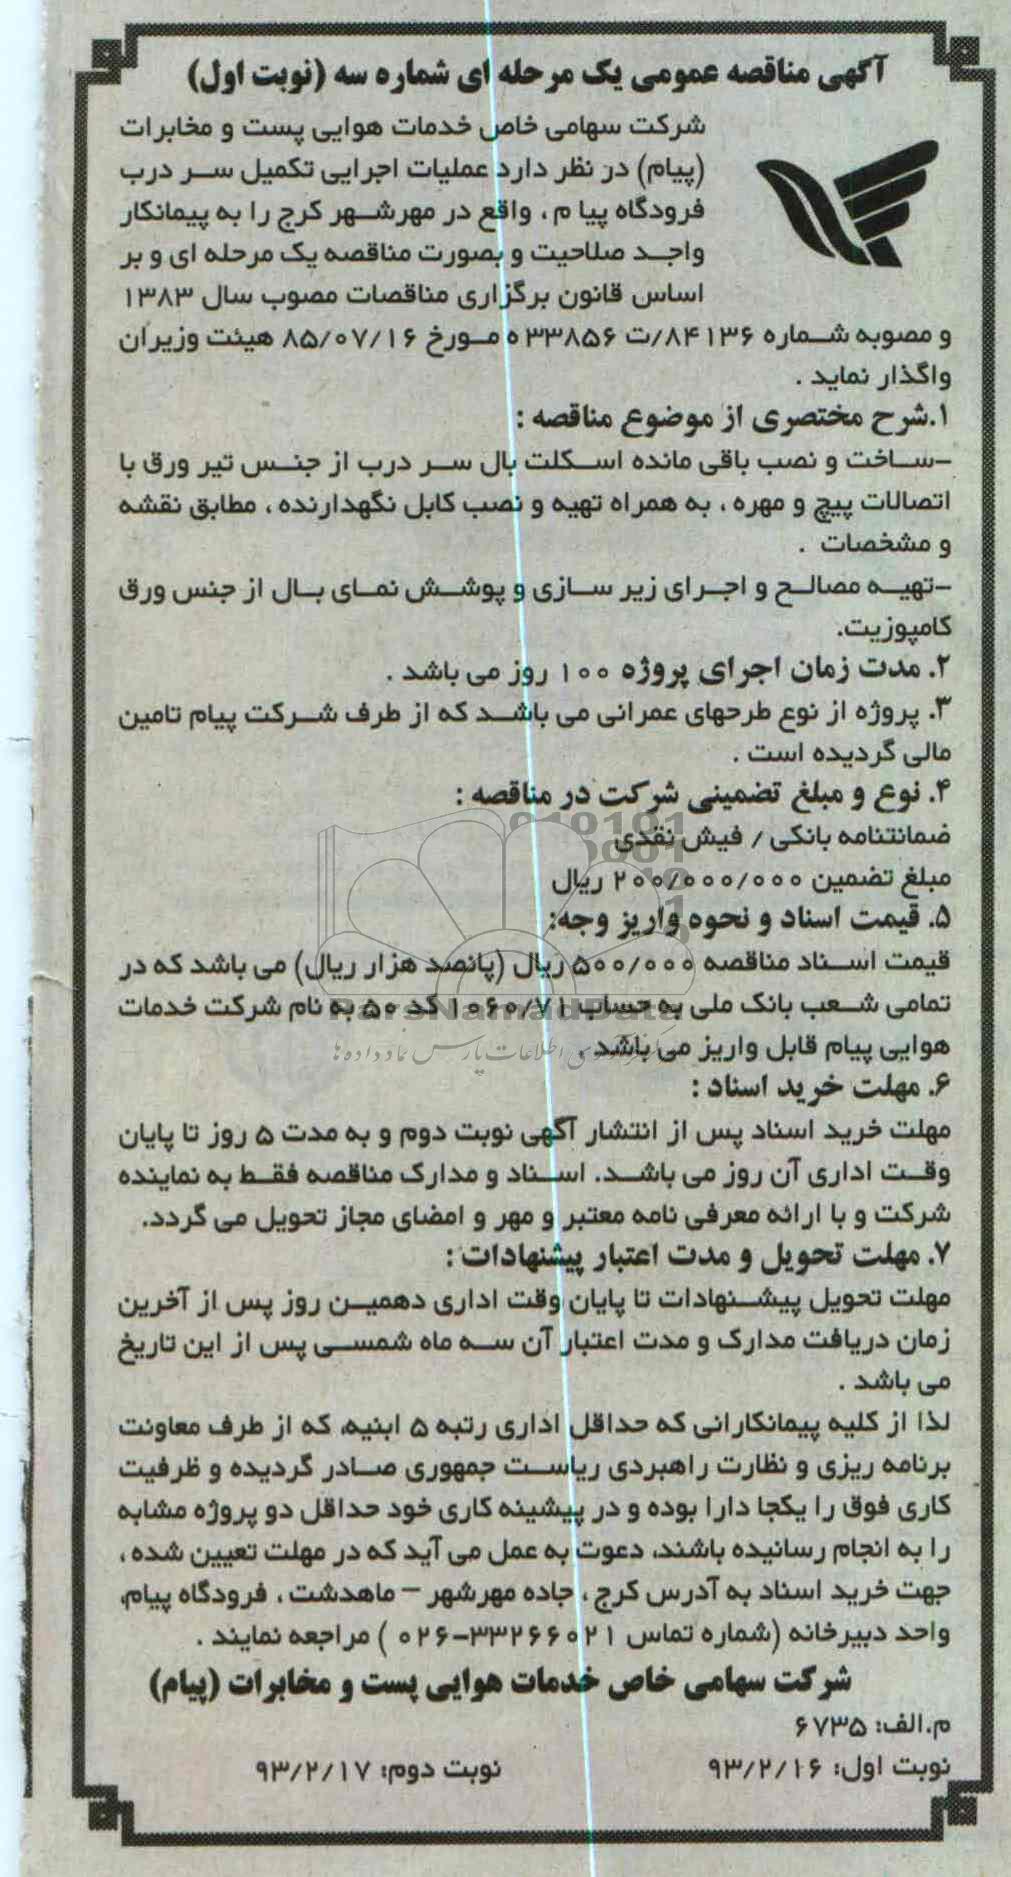 آگهی مناقصه عمومی یک مرحله ای شماره سه (نوبت اول)
شرکت سهامی خاص خدمات هوایی پست و مخابرات
(پیام) در نظر دارد عملیات اجرایی تکمیل سر درب
فرودگاه پیا م ، واقع در مهرشهر کرج را به پیمانکار
واجد صلاحیت و بصورت مناقصه یک مرحله ای و بر
اساس قانون برگزاری مناقصات مصوب سال ۱۳۸۳
و مصوبه شماره ۸۴۱۳۶/ت ۳۳۸۵۶ ه مورخ ۸۵/۰۷/۱۶ هیئت وزیران
واگذار نماید .
۱.شرح مختصری از موضوع مناقصه :
-ساخت و نصب باقی مانده اسکلت بال سر درب از جنس تیر ورق با
اتصالات پیچ و مهره ، به همراه تهیه و نصب کابل نگهدارنده ، مطابق نقشه
و مشخصات .
-تهیه مصالح و اجرای زیر سازی و پوشش نمای بال از جنس ورق
کامپوزیت.
۲. مدت زمان اجرای پروژه ۱۰۰ روز می باشد .
۳. پروژه از نوع طرحهای عمرانی می باشد که از طرف شرکت پیام تامین
مالی گردیده است .
۴. نوع و مبلغ تضمینی شرکت در مناقصه :
ضمانتنامه بانکی / فیش نقدی
مبلغ تضمین ۲۰۰/۰۰۰/۰۰۰ ریال
۵. قیمت اسناد و نحوه واریز وجه:
قیمت اسناد مناقصه ۵۰۰/۰۰۰ ریال (پانصد هزار ریال) می باشد که در
تمامی شعب بانک ملی به حساب ۱۰۶۰/۷۱ کد ۵۰ به نام شرکت خدمات
هوایی پیام قابل واریز می باشد .
۶. مهلت خرید اسناد :
مهلت خرید اسناد پس از انتشار آگهی نوبت دوم و به مدت ۵ روز تا پایان
وقت اداری آن روز می باشد. اسناد و مدارک مناقصه فقط به نماینده
شرکت و با ارائه معرفی نامه معتبر و مهر و امضای مجاز تحویل می گردد.
۷. مهلت تحویل و مدت اعتبار پیشنهادات :
مهلت تحویل پیشنهادات تا پایان وقت اداری دهمین روز پس از آخرین
زمان دریافت مدارک و مدت اعتبار آن سه ماه شمسی پس از این تاریخ
می باشد .
لذا از کلیه پیمانکارانی که حداقل اداری رتبه ۵ ابنیه، که از طرف معاونت
برنامه ریزی و نظارت راهبردی ریاست جمهوری صادر گردیده و ظرفیت
کاری فوق را یکجا دارا بوده و در پیشینه کاری خود حداقل دو پروژه مشابه
را به انجام رسانیده باشند، دعوت به عمل می آید که در مهلت تعیین شده ،
جهت خرید اسناد به آدرس کرج ، جاده مهرشهر – ماهدشت ، فرودگاه پیام،
واحد دبیرخانه (شماره تماس ۳۳۲۶۶۰۲۱-۰۲۶ ) مراجعه نمایند .
شرکت سهامی خاص خدمات هوایی پست و مخابرات (پیام)
م.الف: ۶۷۳۵
نوبت اول: ۹۳/۲/۱۶ نوبت دوم: ۹۳/۲/۱۷